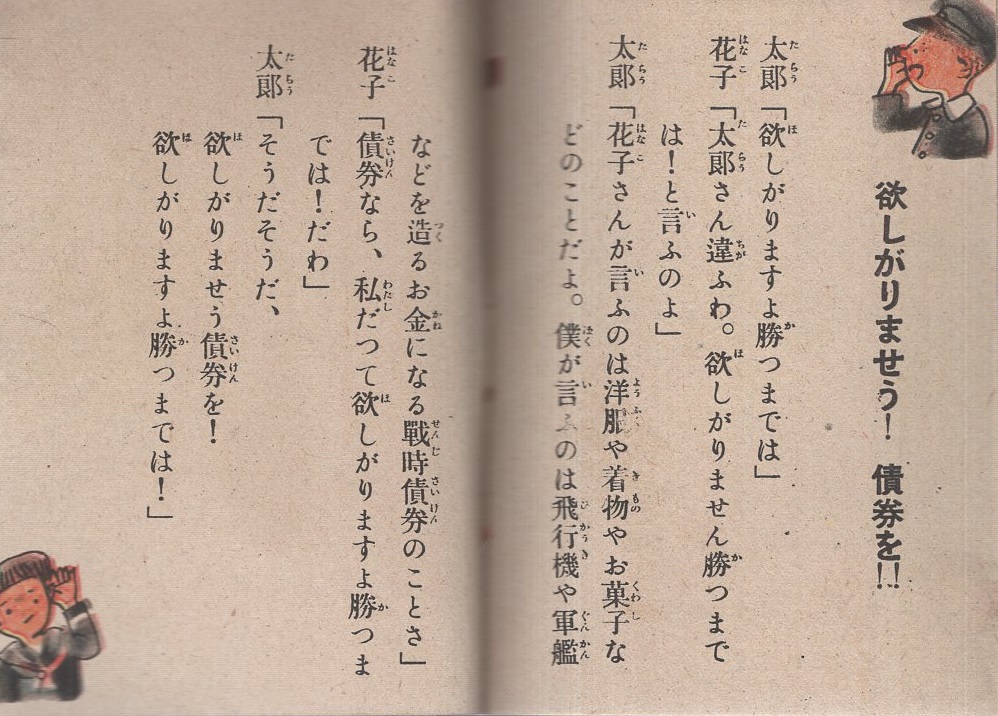 欲しがりませう！　債券を!!
太郎「欲しがりますよ勝つまでは」
花子「太郎さん違ふわ。欲しがりません勝つまで
は！と言ふのよ」
太郎「花子さんが言ふのは洋服や着物やお菓子な
どのことだよ。僕が言ふのは飛行機や軍艦
などを造るお金になる戰時債券のことさ」
花子「債券なら、私だつて欲しがりますよ勝つま
では！だわ」
太郎「そうだそうだ、
欲しがりませう債券を！
欲しがりますよ勝つまでは！」